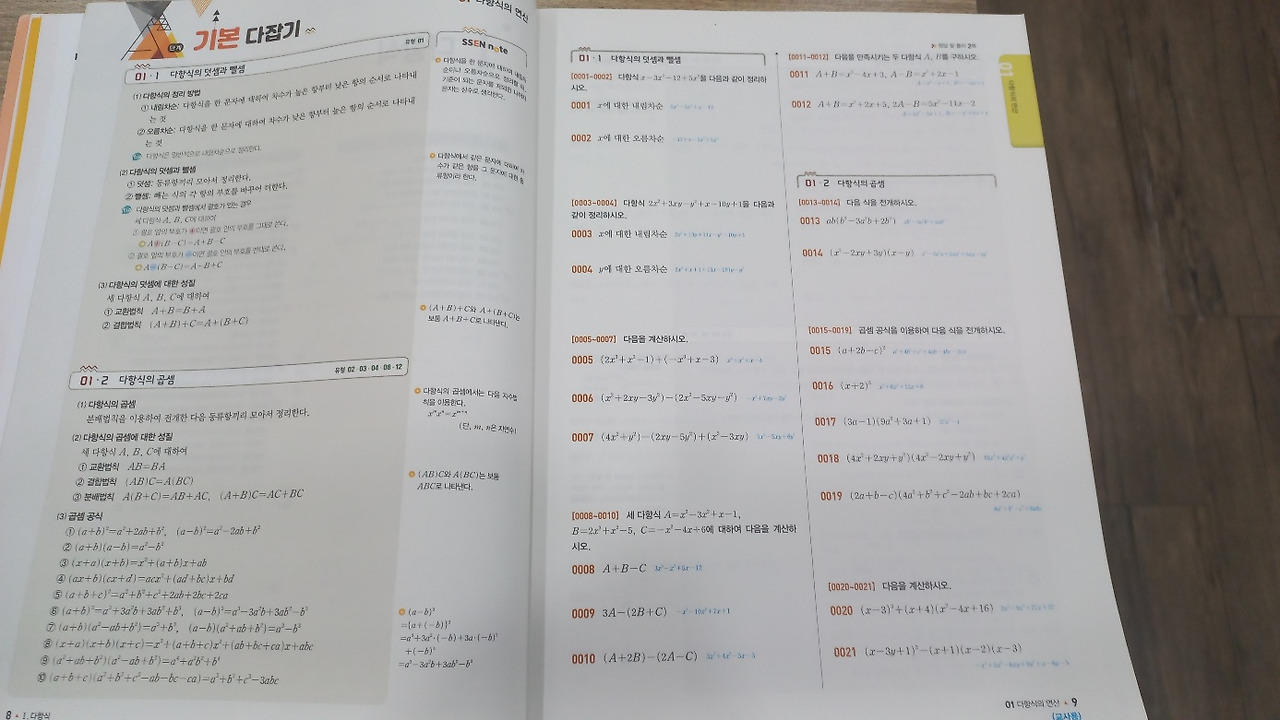 01 다항식의 연산
A 단계
기본 다잡기
01 · 1 다항식의 덧셈과 뺄셈
유형 01
(1) 다항식의 정리 방법
① 내림차순: 다항식을 한 문자에 대하여 차수가 높은 항부터 낮은 항의 순서로 나타내
는 것
② 오름차순: 다항식을 한 문자에 대하여 차수가 낮은 항부터 높은 항의 순서로 나타내
는 것
다항식은 일반적으로 내림차순으로 정리한다.
(2) 다항식의 덧셈과 뺄셈
① 덧셈: 동류항끼리 모아서 정리한다.
② 뺄셈: 빼는 식의 각 항의 부호를 바꾸어 더한다.
다항식의 덧셈과 뺄셈에서 괄호가 있는 경우
세 다항식 A, B, C에 대하여
① 괄호 앞의 부호가 +이면 괄호 안의 부호를 그대로 쓴다.
A+(B-C)=A+B-C
② 괄호 앞의 부호가 -이면 괄호 안의 부호를 반대로 쓴다.
A-(B-C)=A-B+C
(3) 다항식의 덧셈에 대한 성질
세 다항식 A, B, C에 대하여
① 교환법칙 A+B=B+A
② 결합법칙 (A+B)+C=A+(B+C)
01 · 2 다항식의 곱셈
유형 02·03·04·08·12
(1) 다항식의 곱셈
분배법칙을 이용하여 전개한 다음 동류항끼리 모아서 정리한다.
(2) 다항식의 곱셈에 대한 성질
세 다항식 A, B, C에 대하여
① 교환법칙 AB=BA
② 결합법칙 (AB)C=A(BC)
③ 분배법칙 A(B+C)=AB+AC, (A+B)C=AC+BC
(3) 곱셈 공식
① (a+b)²=a²+2ab+b², (a-b)²=a²-2ab+b²
② (a+b)(a-b)=a²-b²
③ (x+a)(x+b)=x²+(a+b)x+ab
④ (ax+b)(cx+d)=acx²+(ad+bc)x+bd
⑤ (a+b+c)²=a²+b²+c²+2ab+2bc+2ca
⑥ (a+b)³=a³+3a²b+3ab²+b³, (a-b)³=a³-3a²b+3ab²-b³
⑦ (a+b)(a²-ab+b²)=a³+b³, (a-b)(a²+ab+b²)=a³-b³
⑧ (x+a)(x+b)(x+c)=x³+(a+b+c)x²+(ab+bc+ca)x+abc
⑨ (a²+ab+b²)(a²-ab+b²)=a⁴+a²b²+b⁴
⑩ (a+b+c)(a²+b²+c²-ab-bc-ca)=a³+b³+c³-3abc
8 1. 다항식
SSEN note
다항식을 한 문자에 대하여 내림차
순이나 오름차순으로 정리할 때,
기준이 되는 문자를 제외한 나머지
문자는 상수로 생각한다.
다항식에서 같은 문자에 대하여 차
수가 같은 항을 그 문자에 대한 동
류항이라 한다.
(A+B)+C와 A+(B+C)는
보통 A+B+C로 나타낸다.
다항식의 곱셈에서는 다음 지수법
칙을 이용한다.
xᵐxⁿ=xᵐ⁺ⁿ
(단, m, n은 자연수)
(AB)C와 A(BC)는 보통
ABC로 나타낸다.
(a-b)³
={a+(-b)}³
=a³+3a²·(-b)+3a·(-b)²
+(-b)³
=a³-3a²b+3ab²-b³
01 · 1 다항식의 덧셈과 뺄셈
[0001~0002] 다항식 x-3x²-12+5x³을 다음과 같이 정리하
시오.
0001 x에 대한 내림차순
0002 x에 대한 오름차순
[0003~0004] 다항식 2x²+3xy-y²+x-10y+1을 다음과
같이 정리하시오.
0003 x에 대한 내림차순
0004 y에 대한 오름차순
[0005~0007] 다음을 계산하시오.
0005 (2x³+x²-1)+(-x³+x-3)
0006 (x²+2xy-3y²)-(2x²-5xy-y²)
0007 (4x²+y²)-(2xy-5y²)+(x²-3xy)
[0008~0010] 세 다항식 A=x³-3x²+x-1,
B=2x³+x²-5, C=-x²-4x+6에 대하여 다음을 계산하
시오.
0008 A+B-C
0009 3A-(2B+C)
0010 (A+2B)-(2A-C)
정답 및 풀이 2쪽
[0011~0012] 다음을 만족시키는 두 다항식 A, B를 구하시오.
0011 A+B=x²-4x+3, A-B=x²+2x-1
0012 A+B=x²+2x+5, 2A-B=5x²-11x-2
01 · 2 다항식의 곱셈
[0013~0014] 다음 식을 전개하시오.
0013 ab(b²-3a²b+2b²)
0014 (x²-2xy+3y)(x-y)
[0015~0019] 곱셈 공식을 이용하여 다음 식을 전개하시오.
0015 (a+2b-c)²
0016 (x+2)³
0017 (3a-1)(9a²+3a+1)
0018 (4x²+2xy+y²)(4x²-2xy+y²)
0019 (2a+b-c)(4a²+b²+c²-2ab+bc+2ca)
[0020~0021] 다음을 계산하시오.
0020 (x-3)³+(x+4)(x²-4x+16)
0021 (x-3y+1)²-(x+1)(x-2)(x-3)
01 다항식의 연산
01 다항식의 연산 9
(교사용)